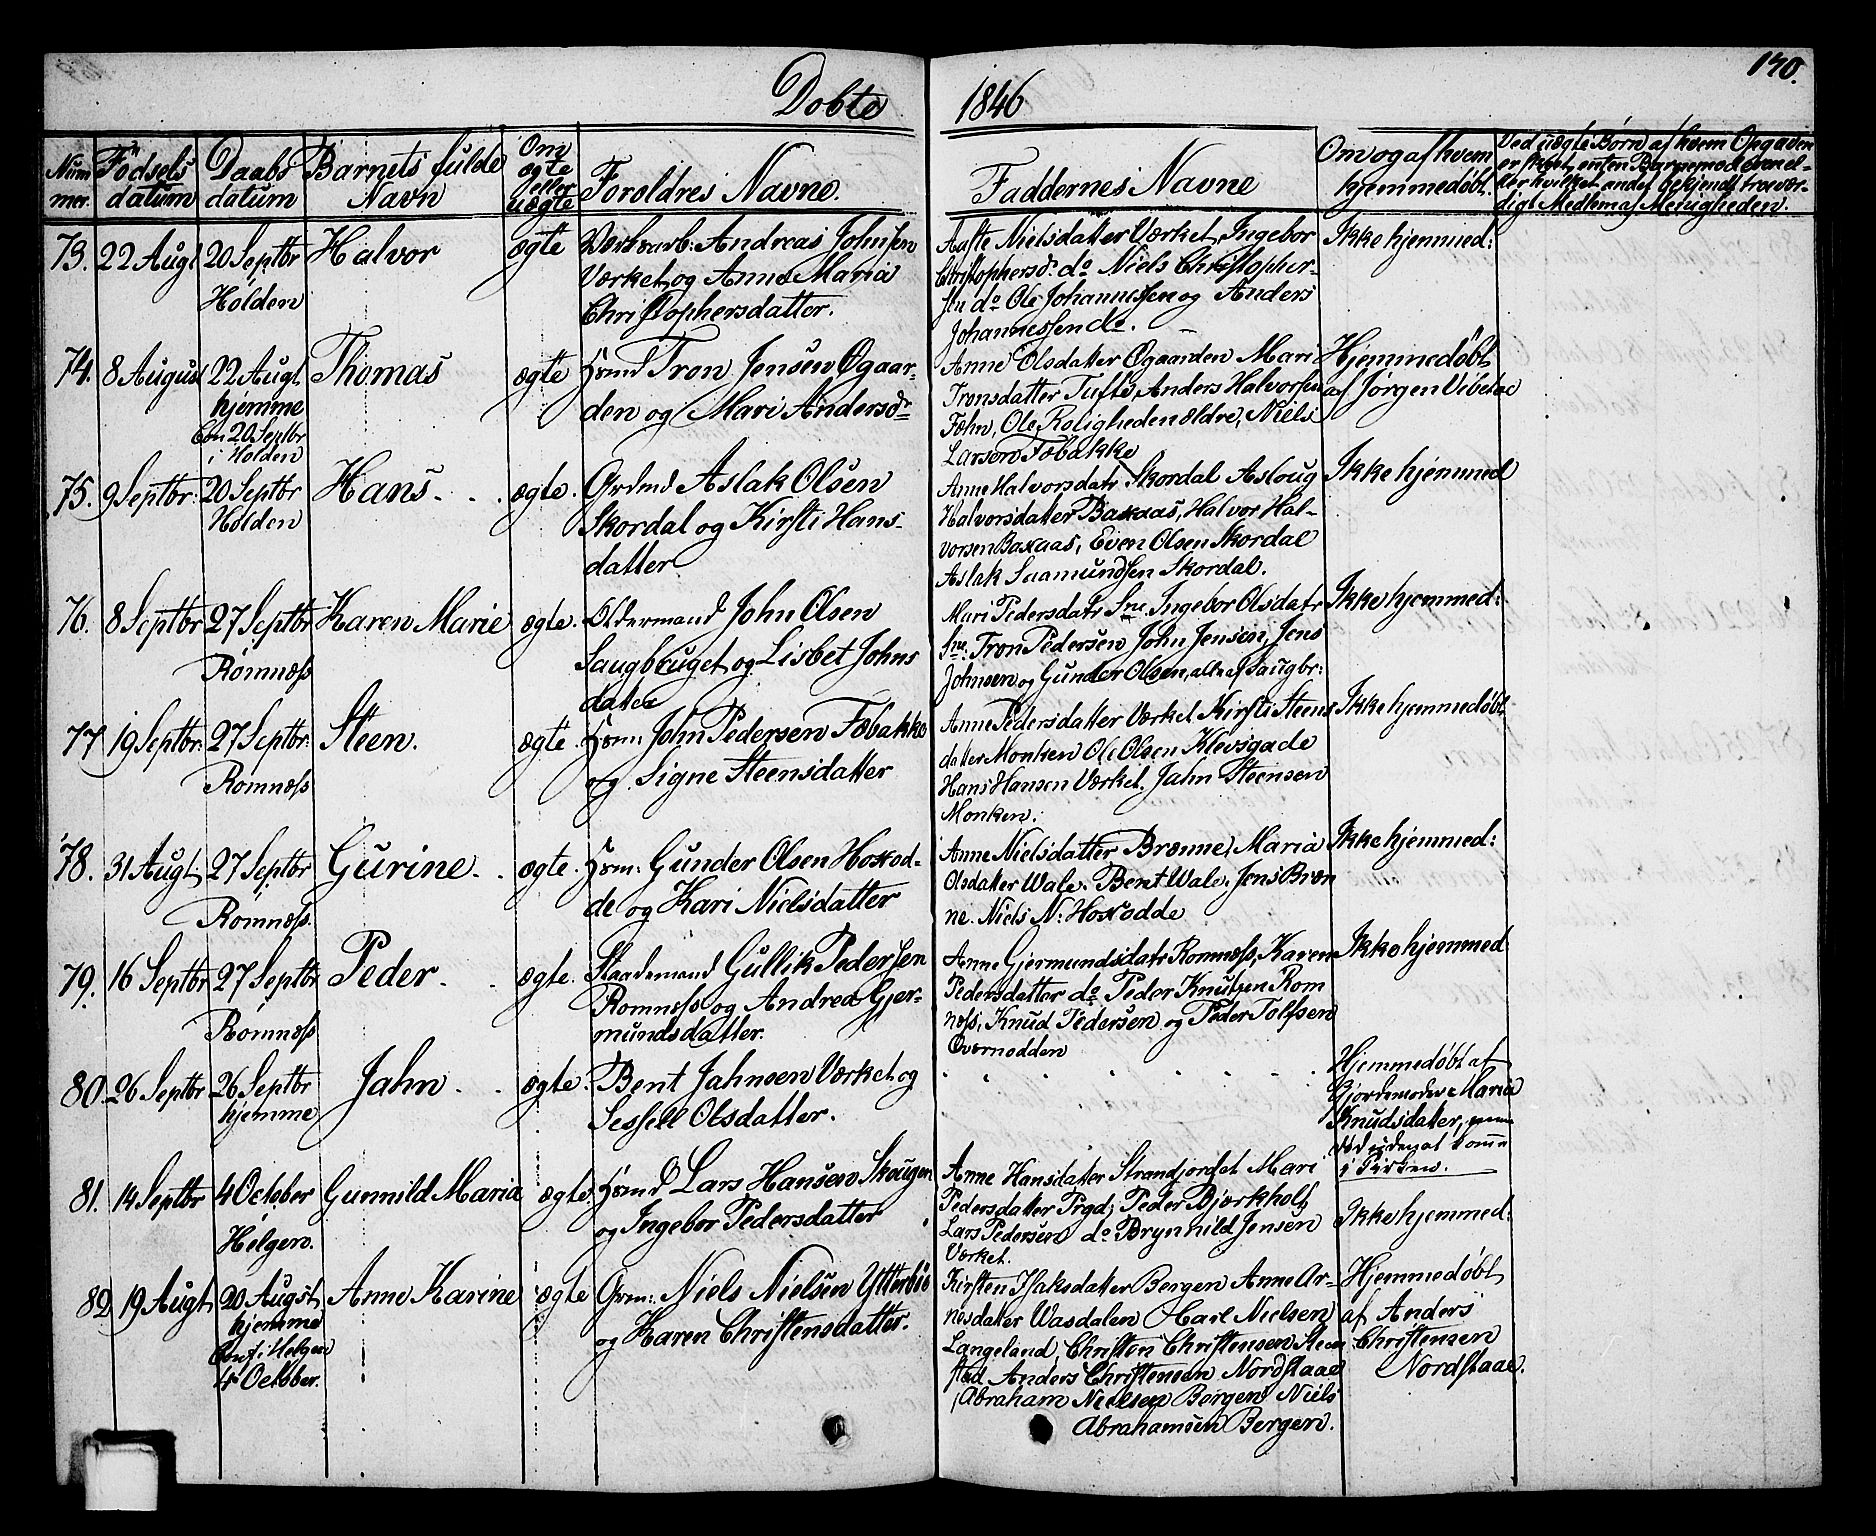 Døbte 1846
170.
Nummer.
Fødsels datum
Daabs datum
Barnets fulde Navn
Om ægte eller uægte
Foroldres Navne.
Faddernes Navne
Om og af hvem hjemmedøbt.
Ved uægte Børn af hvem Opgaven
er skeet, enten Barnemoderen el-
ler hvilket andet bekjendt troevær-
digt Medlem af Menigheden.
73. 22 Augt 20 Septbr Holden
Halvor
ægte
Værksarb: Andreas Johnsen
Værket og Anne Maria
Christophersdatter.
Aaste Nielsdatter Værket, Ingebor
Christophersd. do Niels Christopher-
sen do Ole Johannessen og Anders
Johannessen do.
Ikke hjemmed:
74. 8 August 22 Augt hjemme
Con 20 Septbr i Holden
Thomas
ægte
Huusmd Tron Jensen Øgaar-
den og Mari Andersdr
Anne Olsdatter Øgaarden Mari
Tronsdatter Tufte, Anders Halvorsen
Fæhn, Ole Roligheden ældre, Niels
Larsen Fæbakke
Hjemmedøbt
af Jørgen Vibetoe
75. 9 Septbr: 20 Septbr Holden
Hans
ægte.
Grdmd Aslak Olsen
Skordal og Kirsti Hans-
datter
Anne Halvorsdatr Skordal Asloug
Halvorsdatter Baxaas, Halvor Hal-
vorsen Baxaas, Even Olsen Skordal
Aslak Saamundsen Skordal.
Ikke hjemmed
76. 8 Septbr 27 Septbr Romnæss
Karen Marie
ægte.
Oldermand John Olsen
Saugbruget og Lisbet Johns
datter
Mari Pedersdatr Sne. Ingebor Olsdatr
Sne: Tron Pedersen John Jensen, Jens
Johnsen og Gunder Olsen, alle af Saugbr:
Ikke hjemmed:
77 19 Septbr: 27 Septbr: Romnæss
Steen.
ægte.
Huusm: John Pedersen Fæbakke
og Signe Steensdatter
Anne Pedersdatter Værket Kirsti Steens
datter Monken Ole Olsen Klevsgade
Hans Hansen Værket. Jahn Steensen
Monken.
Ikke hjemmedøbt
78. 31 Augt 27 Septbr Romnæss.
Gurine
ægte.
Huusm: Gunder Olsen Hoxod-
de og Kari Nielsdatter
Anne Nielsdatter Brænne, Maria
Olsdatter Wale. Bent Wale. Jens Bræn
ne. Niels N: Hoxodde
Ikke hjemmed:
79. 16 Septbr 27 Septbr Romnæss
Peder
ægte.
Gaardmand Gullik Pedersen
Romnæss og Andrea Gjer-
mundsdatter.
Anne Gjermundsdatr Romnæss, Karen
Pedersdatter do Peder Knutsen Rom
næss, Knud Pedersen og Peder Tolfsen
Overnodden
Ikke hjemmed
80. 26 Septbr 26 Septbr hjemme
Jahn
ægte.
Bent Jahnsen Værket og
Sessell Olsdatter.
Hjemmedøbt af
Gjordemoder Maria
Knudsdatter, men
død uden at komme
i Kirken.
81. 14 Septbr 4 October Helgen.
Gunnild Maria
ægte
Huusmd Lars Hansen Skougen
og Ingebor Pedersdatter
Anne Hansdatter Strandjordet Mari
Pedersdatter Prgd; Peder Bjørkholt,
Lars Pedersen do Brynnild Jensen
Værket.
Ikke hjemmed:
82 19 Augt 20 Augst, hjemme
Conf: i Helgen 4 October.
Anne Karine
ægte
Grm: Niels Nielsen Ytterbøe
og Karen Christensdatter.
Kirsten Isaksdatter Bergen Anne Ar-
nesdatter Wasdalen Harl Nielsen
Langeland, Christen Christensen Steen
stad Anders Christensen Nordstaae
Abraham Nielsen Bergen Niels
Abrahamsen Bergen.
Hjemmedøbt
af Anders
Christensen
Nordstaae.